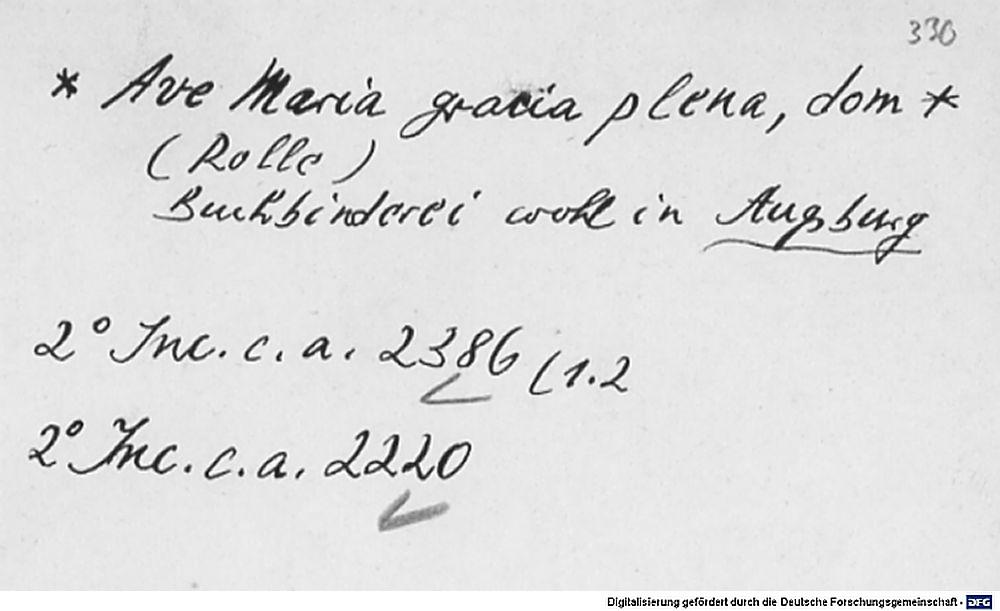 330
* Ave Maria gracia plena, dom *
(Rolle)
Buchbinderei wohl in Augsburg
2° Inc. c. a. 2386 (1.2
2° Inc. c. a. 2220
Digitalisierung gefördert durch die Deutsche Forschungsgemeinschaft - DFG